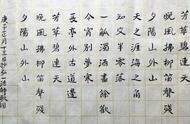 芳草碧連天
晚風拂柳笛聲殘
夕陽山外山
天之涯海之角
知交半零落
一觚濁酒盡餘歡
今宵別夢寒
長亭外古道邊
芳草碧連天
晚風拂柳笛聲殘
夕陽山外山